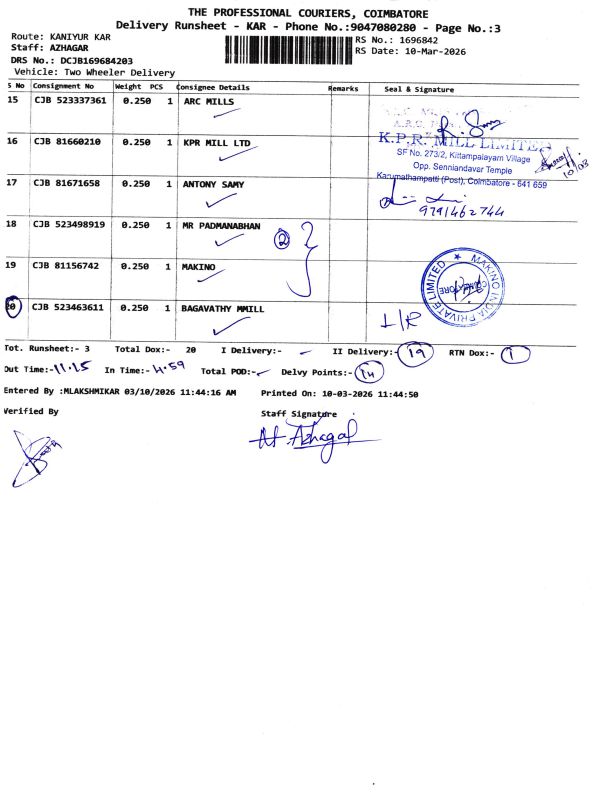 THE PROFESSIONAL COURIERS, COIMBATORE
Delivery Runsheet - KAR - Phone No.:9047080280 - Page No.:3
Route: KANIYUR KAR
RS No.: 1696842
Staff: AZHAGAR
RS Date: 10-Mar-2026
DRS No.: DCJB169684203
Vehicle: Two Wheeler Delivery
S No Consignment No Weight PCS Consignee Details Remarks Seal & Signature
15 CJB 523337361 0.250 1 ARC MILLS
16 CJB 81660210 0.250 1 KPR MILL LTD
K.P.R. MILL LIMITED
SF No. 273/2, Kittampalayam Village
Opp. Senniandavar Temple
Karumathampatti (Post), Coimbatore - 641 659
10/03
17 CJB 81671658 0.250 1 ANTONY SAMY
9791462744
18 CJB 523498919 0.250 1 MR PADMANABHAN
2
19 CJB 81156742 0.250 1 MAKINO
MAKINO INDIA PRIVATE LIMITED
20 CJB 523463611 0.250 1 BAGAVATHY MMILL
Tot. Runsheet:- 3 Total Dox:- 20 I Delivery:- II Delivery:- 19 RTN Dox:- 1
Out Time:- 11.15 In Time:- 4.59 Total POD:- Delvy Points:- 14
Entered By :MLAKSHMIKAR 03/10/2026 11:44:16 AM Printed On: 10-03-2026 11:44:50
Verified By Staff Signature
Azhagal